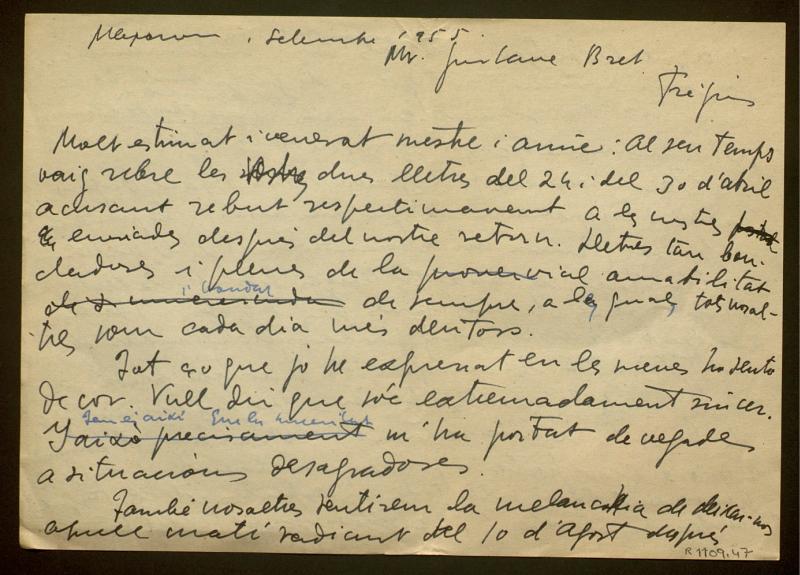 setembre 1955.
Mr. Gustave Bret
Fréjus
Molt estimat i venerat mestre i amic: Al seu temps
vaig rebre les dues lletres del 24 i del 30 d'abril
acusant rebut respectivament a les nostres
enviades després del nostre retorn. Lletres tan bon-
dadoses i plenes de la proverbial amabilitat
i bondat
de sempre, a les quals tots nosal-
tres som cada dia més deutors.
Tot ço que jo he expressat en les meves ho sento
de cor. Vull dir que sóc extremadament sincer.
I això precisament m'ha portat de vegades
a situacions desagradoses.
També nosaltres sentirem la melancolia de deixar-nos
aquell matí radiant del 10 d'Agost després
R 1109.47